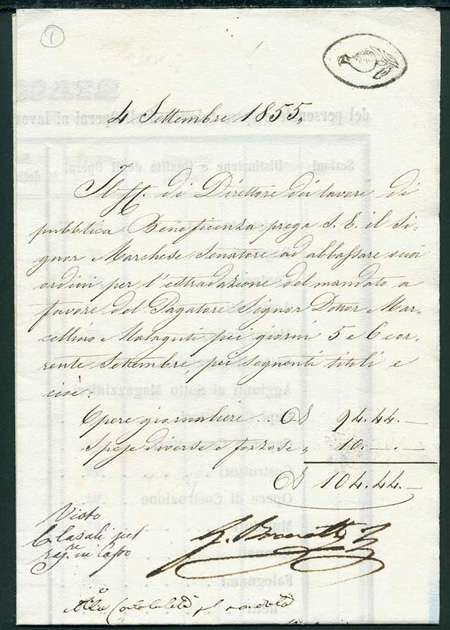 1
4 Settembre 1855,
Il ff. di Direttore dei lavori di
pubblica Beneficenza prega S. E. il Si-
gnor Marchese Senatore ad abbassare suoi
ordini per l'estradazione del mandato a
favore del Pagatore Signor Dottor Mar-
cellino Malaguti per giorni 5 e 6 cor-
rente Settembre per seguenti titoli e
cioè.
Opere giornaliere 94.44.—
Spese diverse e forzose, 10.—.—
104.44.—
Visto
Casali
in Capo
Alla